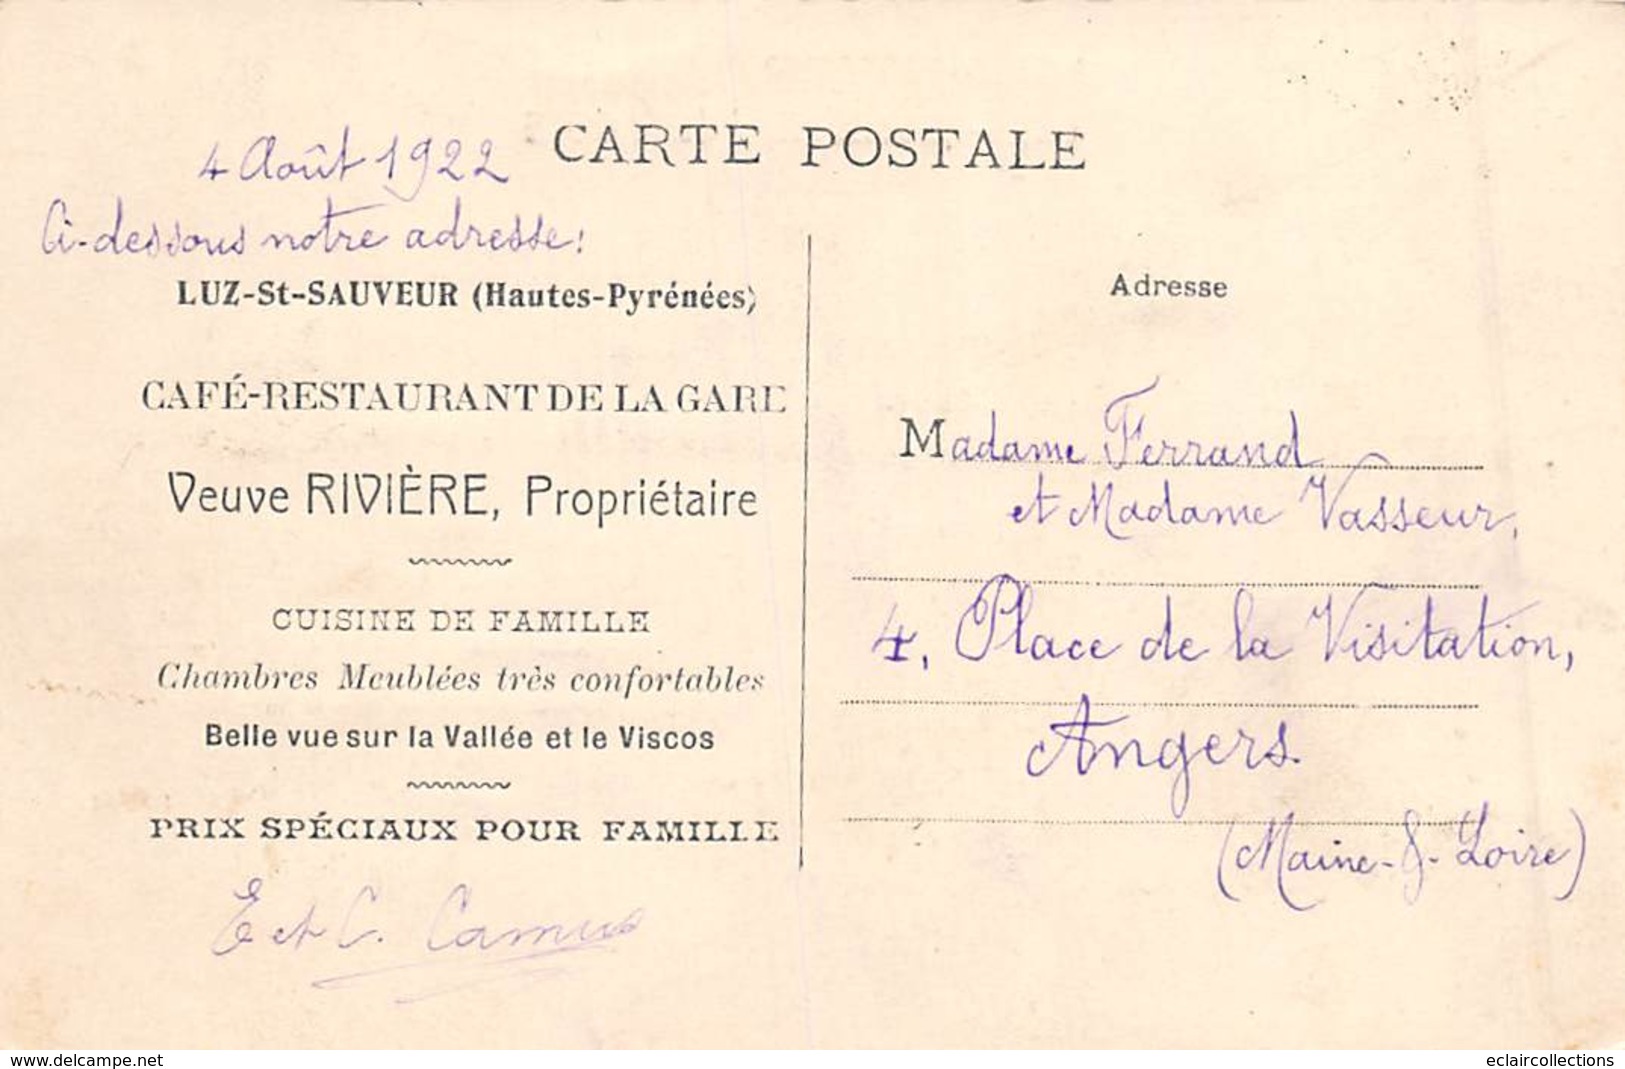 CARTE POSTALE
4 Août 1922
Ci-dessous notre adresse:
LUZ-St-SAUVEUR (Hautes-Pyrénées)
CAFÉ-RESTAURANT DE LA GARE
Veuve RIVIÈRE, Propriétaire
CUISINE DE FAMILLE
Chambres Meublées très confortables
Belle vue sur la Vallée et le Viscos
PRIX SPÉCIAUX POUR FAMILLE
E et C. Camus
Adresse
Madame Ferrand
et Madame Vasseur,
4, Place de la Visitation,
Angers.
(Maine-&-Loire)
www.delcampe.net
eclaircollections